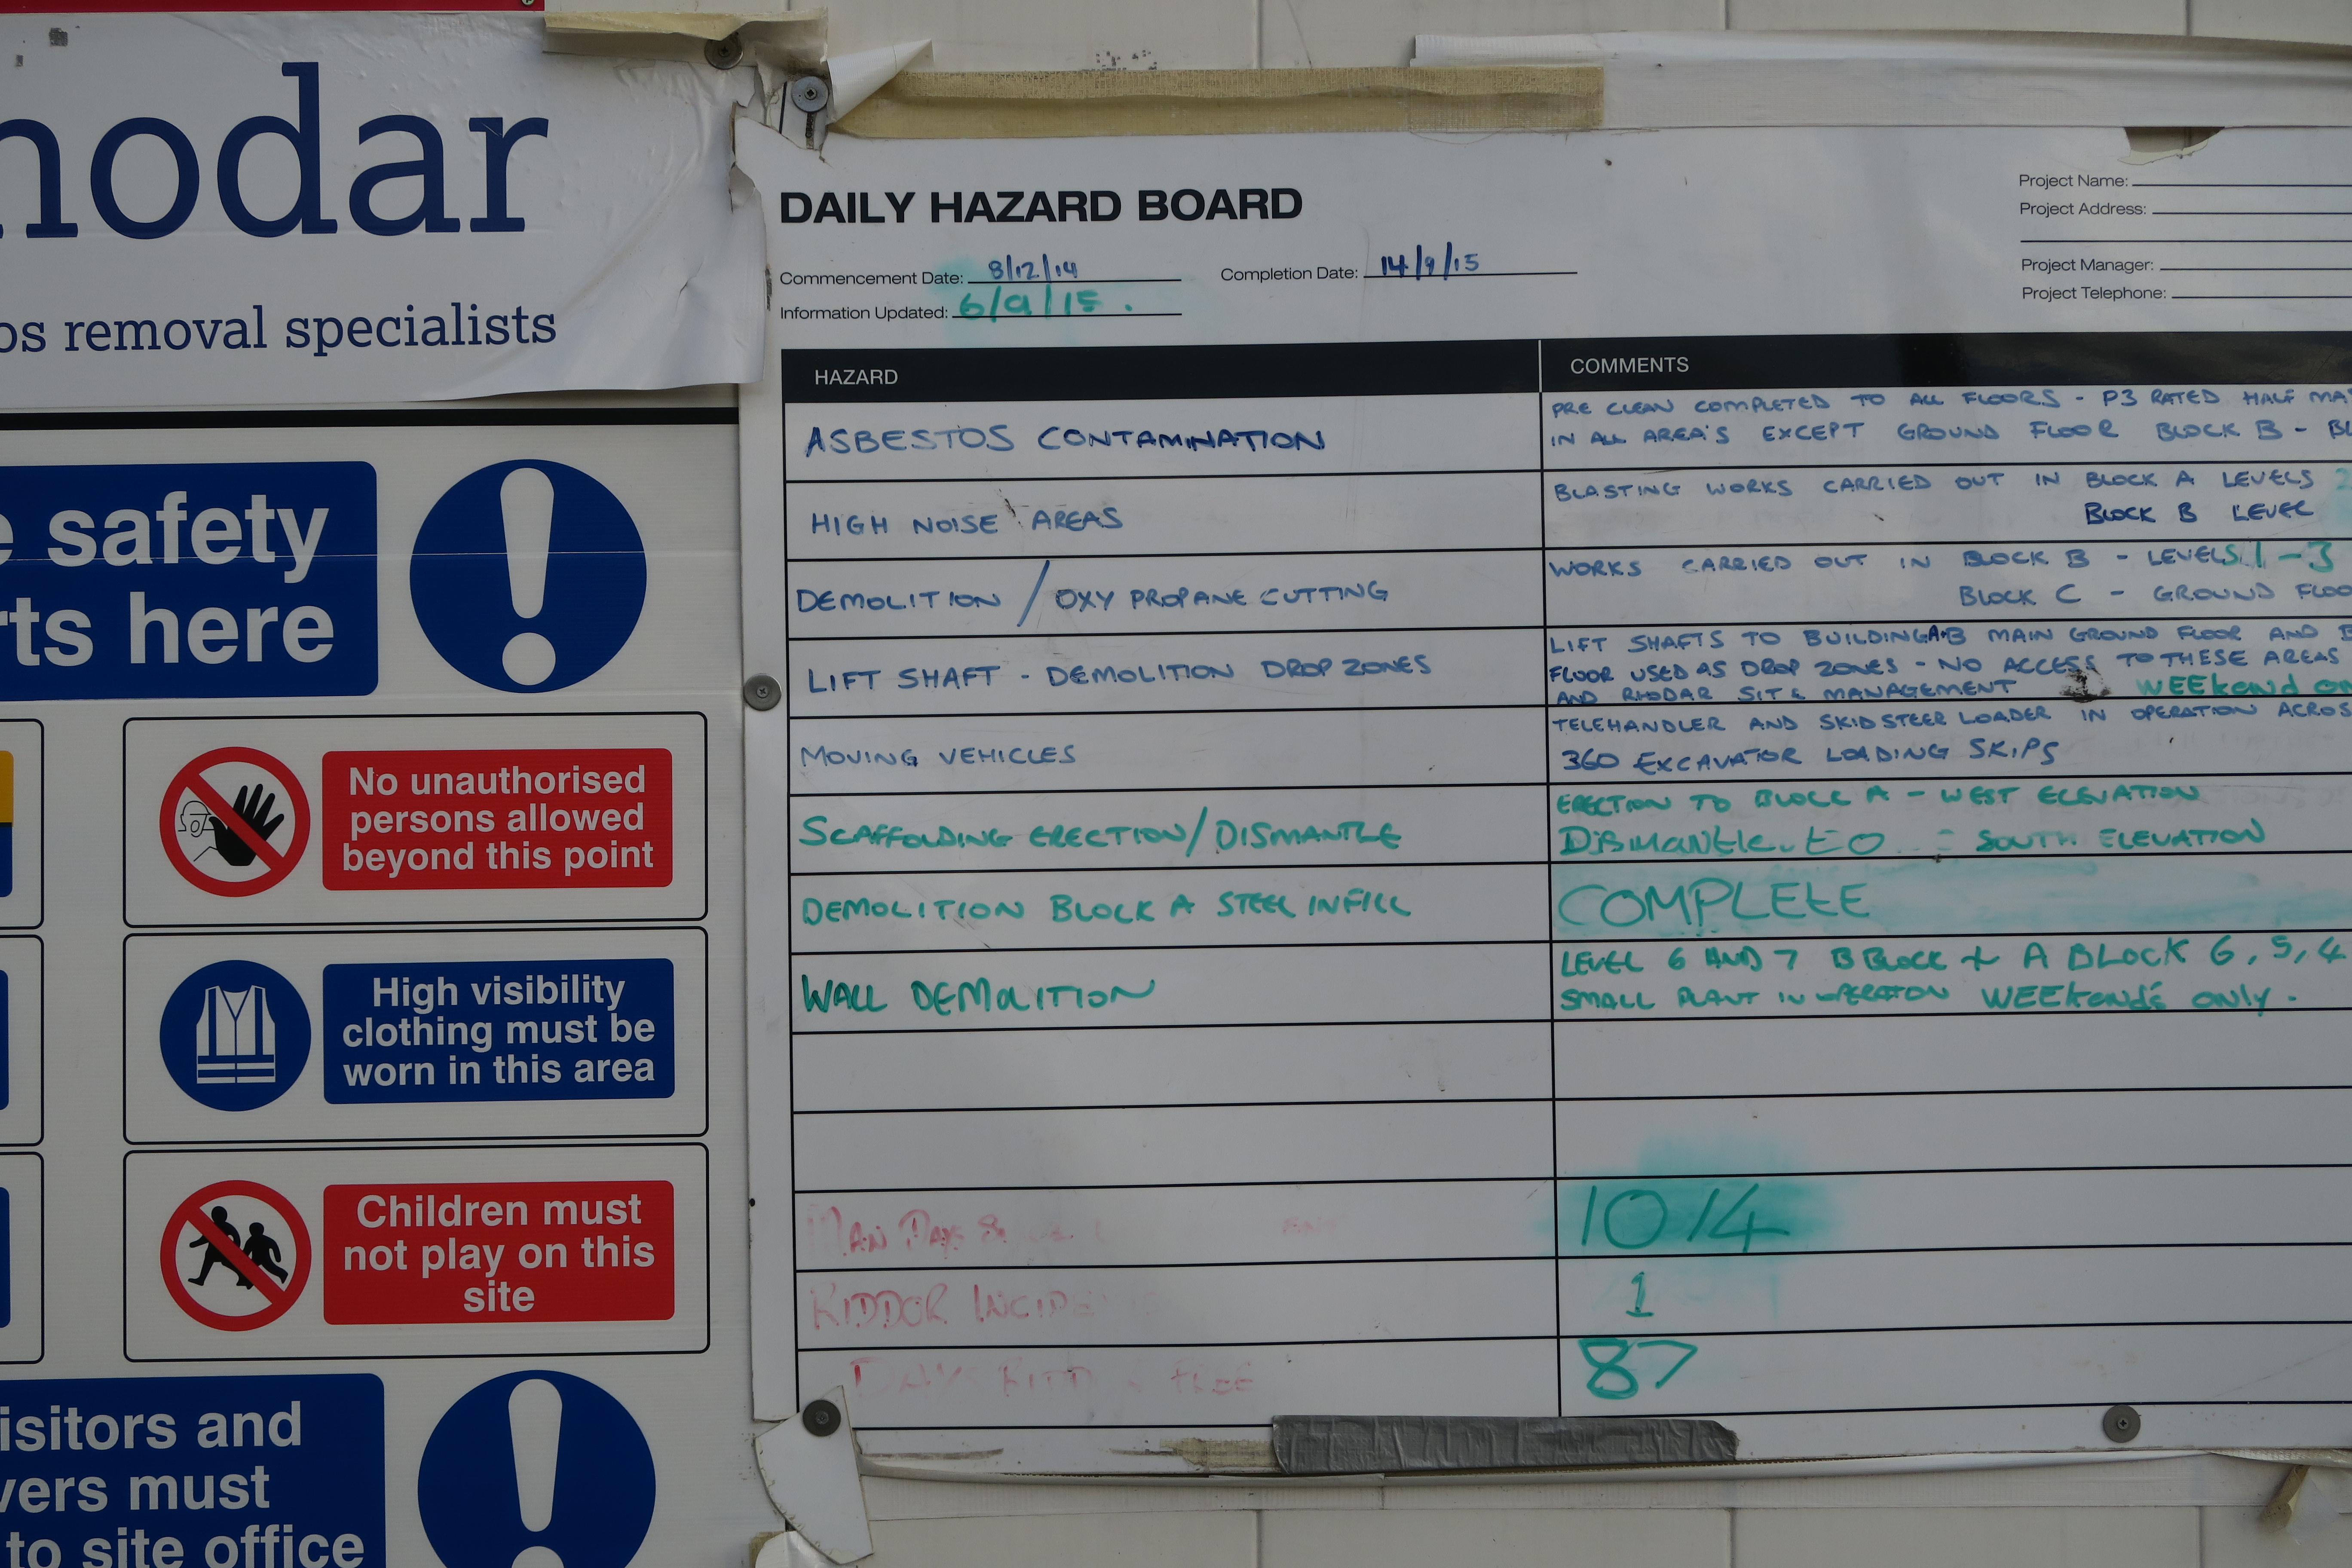 nodar
os removal specialists
e safety
rts here
No unauthorised
persons allowed
beyond this point
High visibility
clothing must be
worn in this area
Children must
not play on this
site
isitors and
vers must
to site office
DAILY HAZARD BOARD
Commencement Date: 8/12/14
Completion Date: 14/9/15
Information Updated: 6/9/15.
Project Name:
Project Address:
Project Manager:
Project Telephone:
HAZARD
COMMENTS
ASBESTOS CONTAMINATION
PRE CLEAN COMPLETED TO ALL FLOORS - P3 RATED HALF MA
IN ALL AREA'S EXCEPT GROUND FLOOR BLOCK B - BL
HIGH NOISE AREAS
BLASTING WORKS CARRIED OUT IN BLOCK A LEVELS 2
BLOCK B LEVEL
DEMOLITION / OXY PROPANE CUTTING
WORKS CARRIED OUT IN BLOCK B - LEVELS 1-3
BLOCK C - GROUND FLOO
LIFT SHAFT - DEMOLITION DROP ZONES
LIFT SHAFTS TO BUILDING A+B MAIN GROUND FLOOR AND B
FLOOR USED AS DROP ZONES - NO ACCESS TO THESE AREAS
AND RHODAR SITE MANAGEMENT WEEKEND ON
MOVING VEHICLES
TELEHANDLER AND SKIDSTEER LOADER IN OPERATION ACROS
360 EXCAVATOR LOADING SKIPS
SCAFFOLDING ERECTION/DISMANTLE
ERECTION TO BLOCK A - WEST ELEVATION
DISMANTLE TO - SOUTH ELEVATION
DEMOLITION BLOCK A STEEL INFILL
COMPLETE
WALL DEMOLITION
LEVEL 6 AND 7 B BLOCK + A BLOCK 6, 5, 4
SMALL PLANT IN OPERATION WEEKENDS ONLY.
MAN DAYS
1014
RIDDOR INCIDE
1
DAYS FREE
87